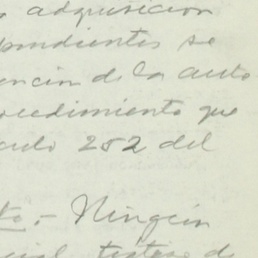 adquisicion
pondientes se
encion de la auto
rocedimiento que
culo 252 del
to.- Ningún
cial, testase de